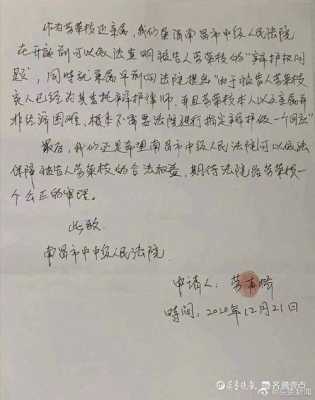 作为劳荣枝近亲属，我们希望南昌市中级人民法院
在开庭前可以依法查明被告人劳荣枝的“辩护权问
题”，同时就亲属早前向法院提出“由于被告人劳荣枝
家人已经为其委托辩护律师，并且劳荣枝本人以及亲属并
非经济困难，根本不需要法院进行指定辩护做一个回应”
最后，我们还是希望南昌市中级人民法院可以依法
保障被告人劳荣枝的合法权益，期待法院给劳荣枝一
个公正的审理。
此致
南昌市中级人民法院
申请人：劳声桥
时间：2020年12月21日
齐鲁壹点